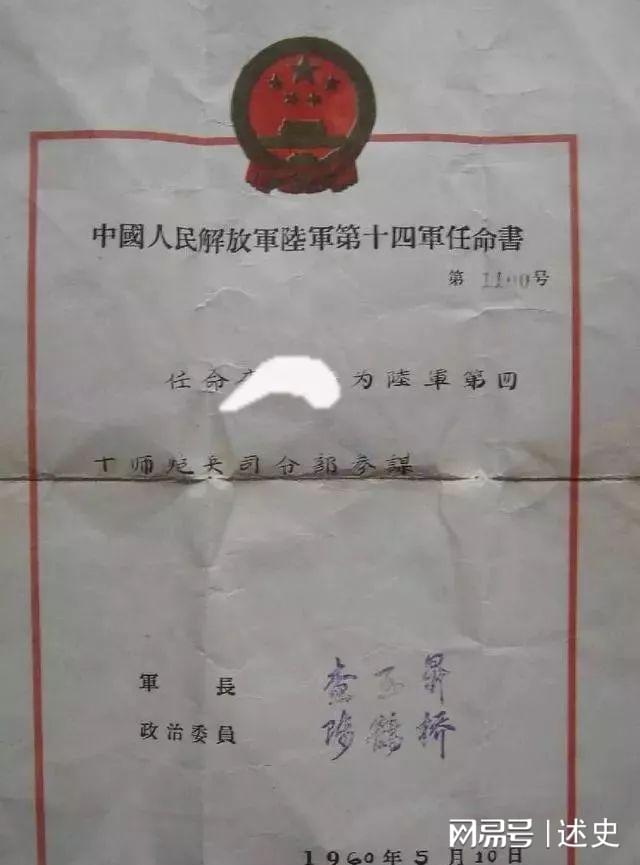 中國人民解放軍陸軍第十四軍任命書
第 1100号
任命 为陸軍第四
十师炮兵司令部参謀
軍 長 查玉昇
政治委員 陈鶴桥
1960年5月10日
网易号 | 述史